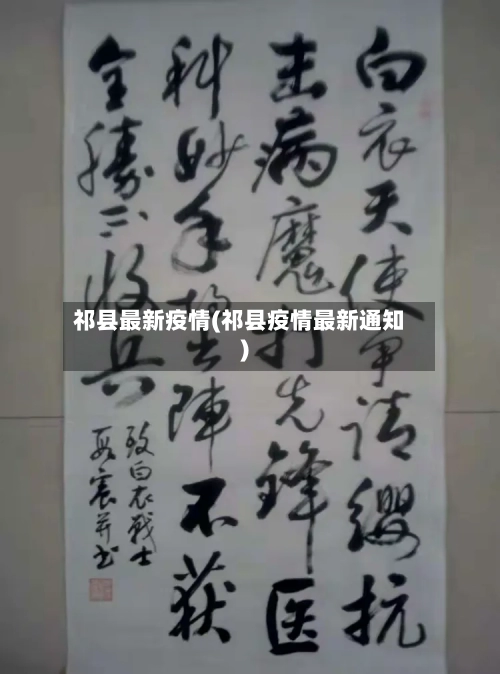 白衣天使争请缨抗
击病魔打先锋医
科妙手摆出阵不获
全胜不收兵
致白衣战士
宸并书
祁县最新疫情(祁县疫情最新通知
)